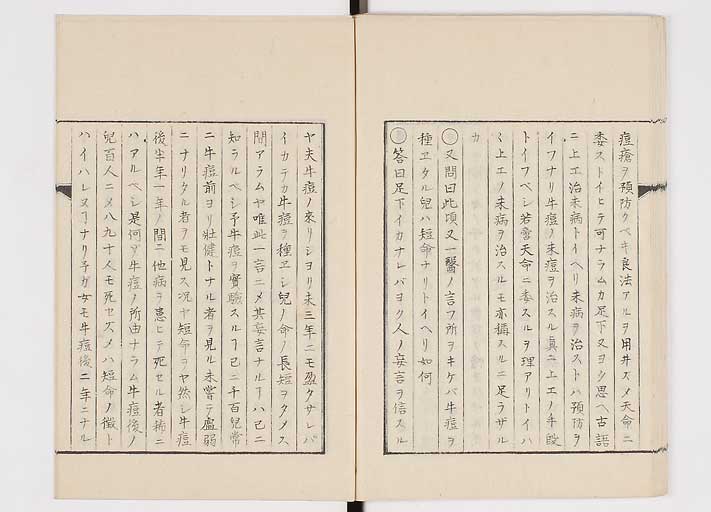 痘瘡ヲ預防クベキ良法アルヲ用井ズメ天命ニ
委ストイヒテ可ナラムカ足下又ヨク思ヘ古語
ニ上工治未病トイヘリ未病ヲ治ストハ預防ヲ
イフナリ牛痘ノ未痘ヲ治スル真ニ上工ノ手段
トイフベシ若嘗天命ニ委スルヲ理アリトイハ
く上工ノ未病ヲ治スルモ亦稱スルニ足ラザル
カ
○又問曰此頃又一醫ノ言フ所ヲキケバ牛痘ヲ
種ヱタル兒ハ短命ナリトイヘリ如何
○答曰足下イカナレバヨク人ノ妄言ヲ信スル
ヤ夫牛痘ノ來リシヨリ未三年ニモ盈クサレバ
イカテカ牛痘ヲ種ヱシ兒ノ命ノ長短ヲタメス
間アラムヤ唯此一言ニメ其妄言ナルヿハ已ニ
知ラルベシ予牛痘ヲ實驗スルヿ已ニ千百兒常
ニ牛痘前ヨリ壯健トナル者ヲ見ル未嘗テ虛弱
ニナリタル者ヲモ見ス况ヤ短命ヲヤ然シ牛痘
後半年一年ノ間ニ他病ヲ患ヒテ死セル者稀ニ
ハアルベシ是何ゾ牛痘ノ所由ナラム牛痘後ノ
兒百人ニメ八九十人モ死セズメハ短命ノ徴ト
ハイハレヌヿナリ予ガ女モ牛痘後二年ニナル